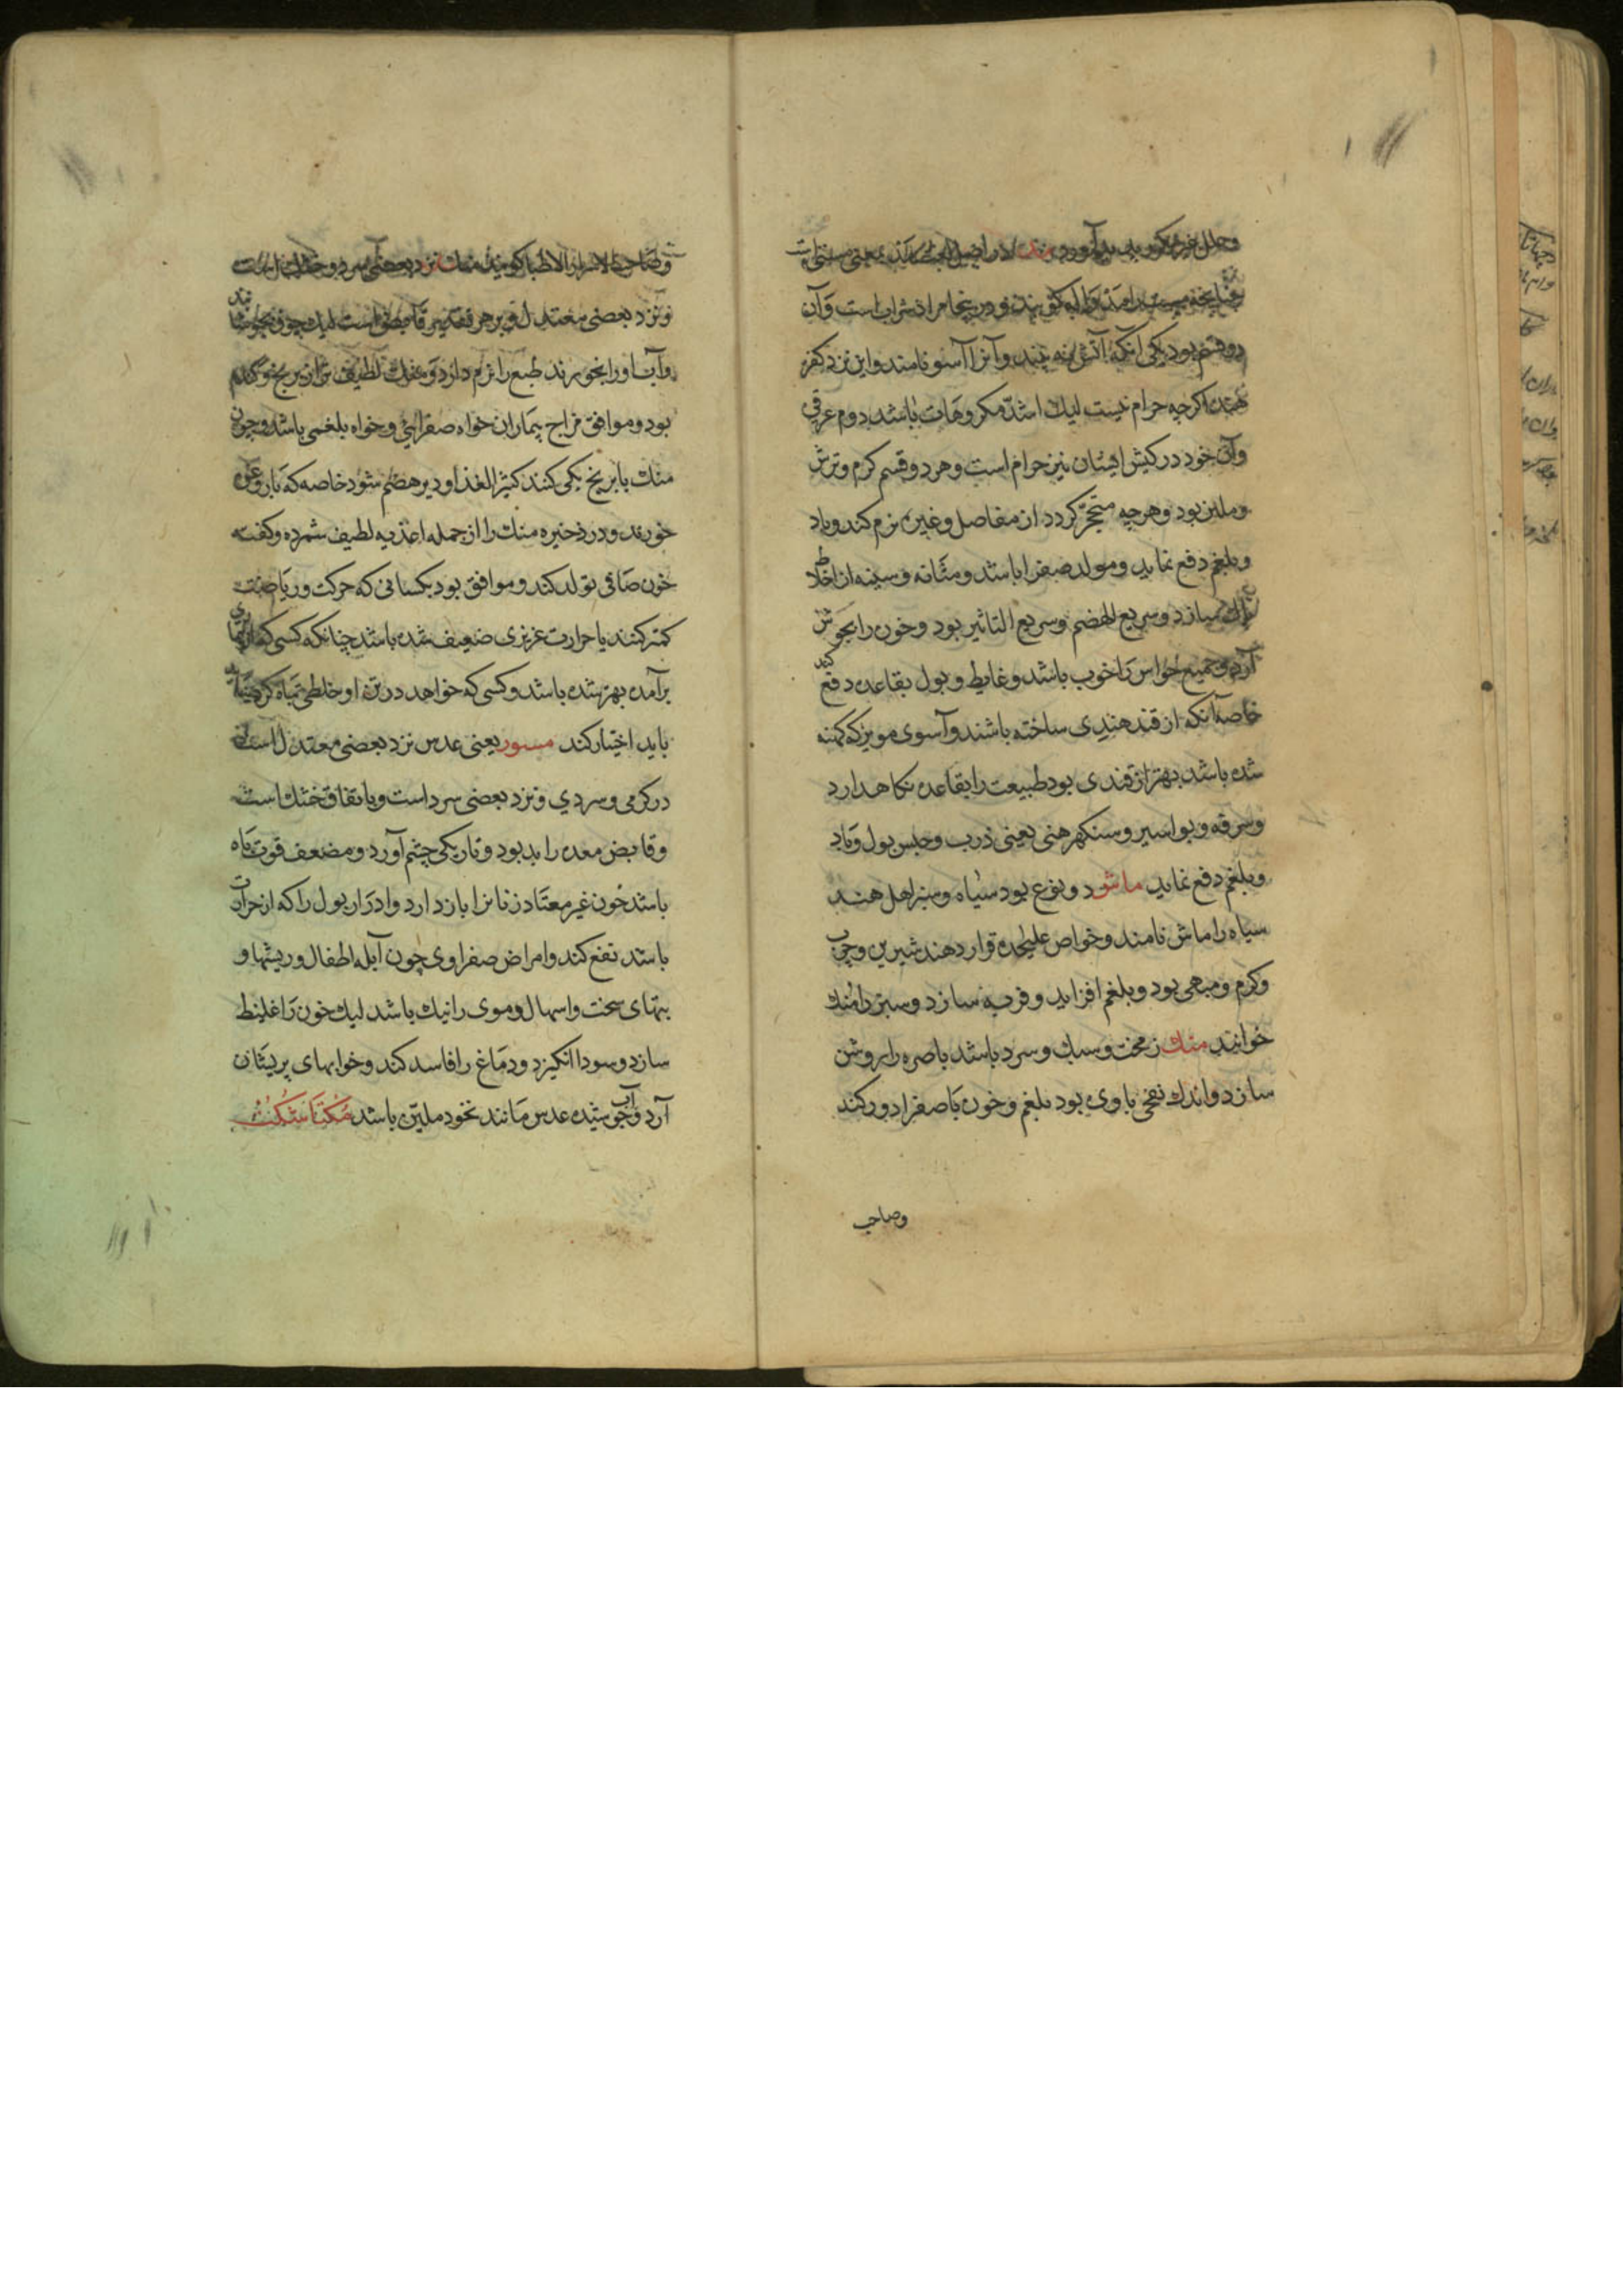 دو قسم بود یکی آنکه آتش نه بیند و آنرا آسو نامند و این نزد کفره
هند اگرچه حرام نیست لیک اشد مکروهات باشد دوم عرقی
و آن خود در کیش ایشان نیز حرام است و هر دو قسم کرم و ترش
و ملین بود و هرچه متحجر کردد از مفاصل و غیره نرم کند و باد
و بلغم دفع نماید و مولد صفرا باشد و مثانه و سینه از اخلاط
پاک سازد و سریع الهضم و سریع التاثیر بود و خون را بجوش
آرد و جمیع حواس را خوب باشد و غایط و بول بقاعده دفع کند
خاصه آنکه از قند هندی ساخته باشند و آسوی مویز که کهنه
شده باشد بهتر از قندی بود طبیعت را بقاعده نکاهدارد
و سرفه و بواسیر و سنکهرهنی یعنی ذرب و حبس بول و باد
و بلغم دفع نماید ماش دو نوع بود سیاه و سبز اهل هند
سیاه را ماش نامند و خواص علیحده قرار دهند شیرین و چرب
و کرم و مبهی بود و بلغم افزاید و فربه سازد و سبز را منك
خوانند منك زمخت و سبك و سرد باشد باصره را روشن
سازد و اندك نفخی با وی بود بلغم و خون با صفرا دور کند
وصاحب
و نزد بعضی معتدل و بر هر تقدیر قابض است لیك چون بجوشانند
و آب او را بخورند طبع را نرم دارد و منك لطیف تر از برنج و کندم
بود و موافق مزاج بیماران خواه صفرائی و خواه بلغمی باشد و چون
منك با برنج یکی کنند کثیر الغذا و دیر هضم شود خاصه که با روغن
خورند و در ذخیره منك را از جمله اغذیه لطیف شمرده و کفته
خون صافی تولد کند و موافق بود بکسانی که حرکت و ریاضت
کمتر کنند یا حرارت غریزی ضعیف شده باشد چنانکه کسی که از بیماری
برآمده بهتر شده باشد و کسی که خواهد در تن او خلطی تباه کرد
باید اختیار کند مسور یعنی عدس نزد بعضی معتدل است
در کرمی و سردی و نزد بعضی سرد است و باتفاق خشك است
و قابض معده را بد بود و تاریکی چشم آورد و مضعف قوت باه
باشد خون غیر معتاد زنانرا باز دارد و ادرار بول را که از حرارت
باشد نفع کند و امراض صفراوی چون آبله اطفال و ریشها و
تبهای سخت و اسهال و موی را نیك باشد لیك خون را غلیظ
سازد و سودا انکیزد و دماغ را فاسد کند و خوابهای پریشان
آرد و آب جوشیده عدس مانند نخود ملین باشد